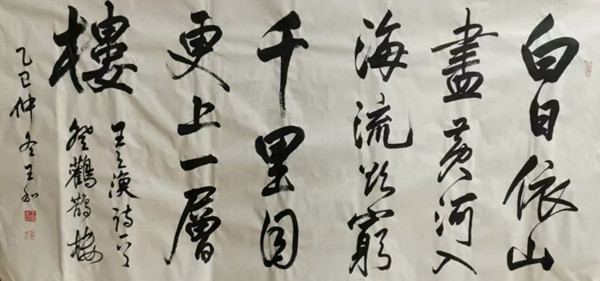 白日依山
盡黃河入
海流欲窮
千里目
更上一層
樓
王之渙詩
登鸛鵲樓
乙巳仲冬